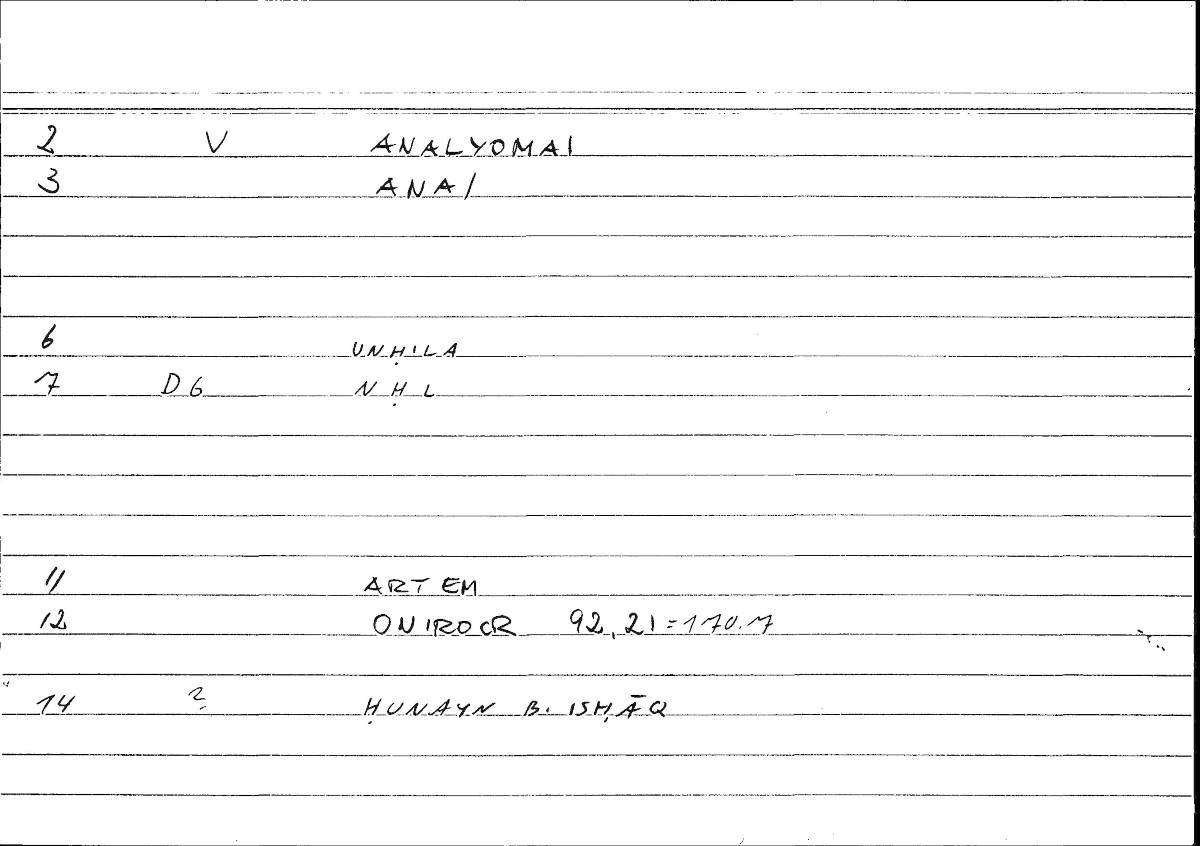 2 V ANALYOMAI
3 ANA/
6 UNḤILA
7 DG NḤL
11 ARTEM
12 ONIROCR 92,21=170.7
14 ? ḤUNAYN B. ISḤĀQ